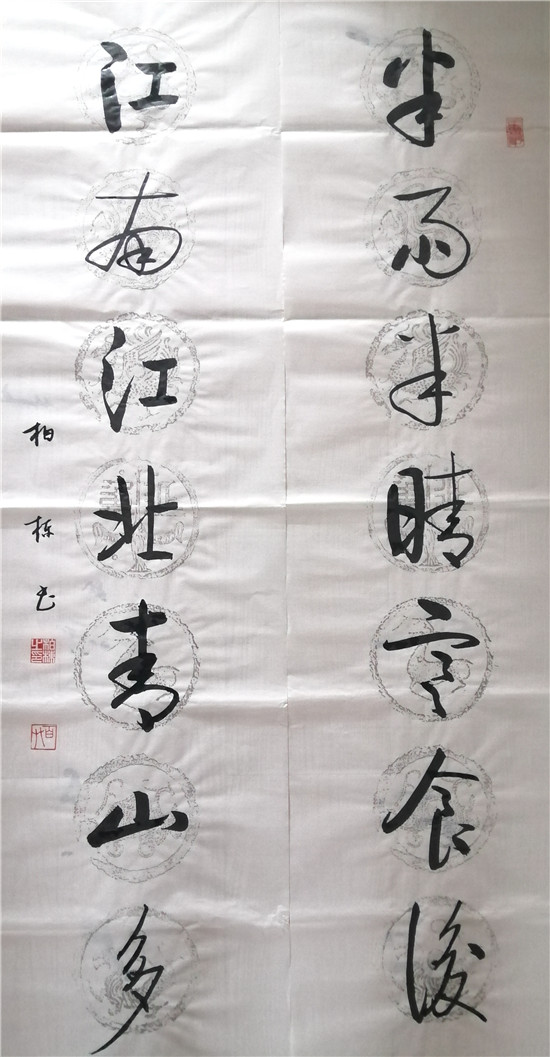 半雨半晴寒食後
江南江北青山多
柏栋书